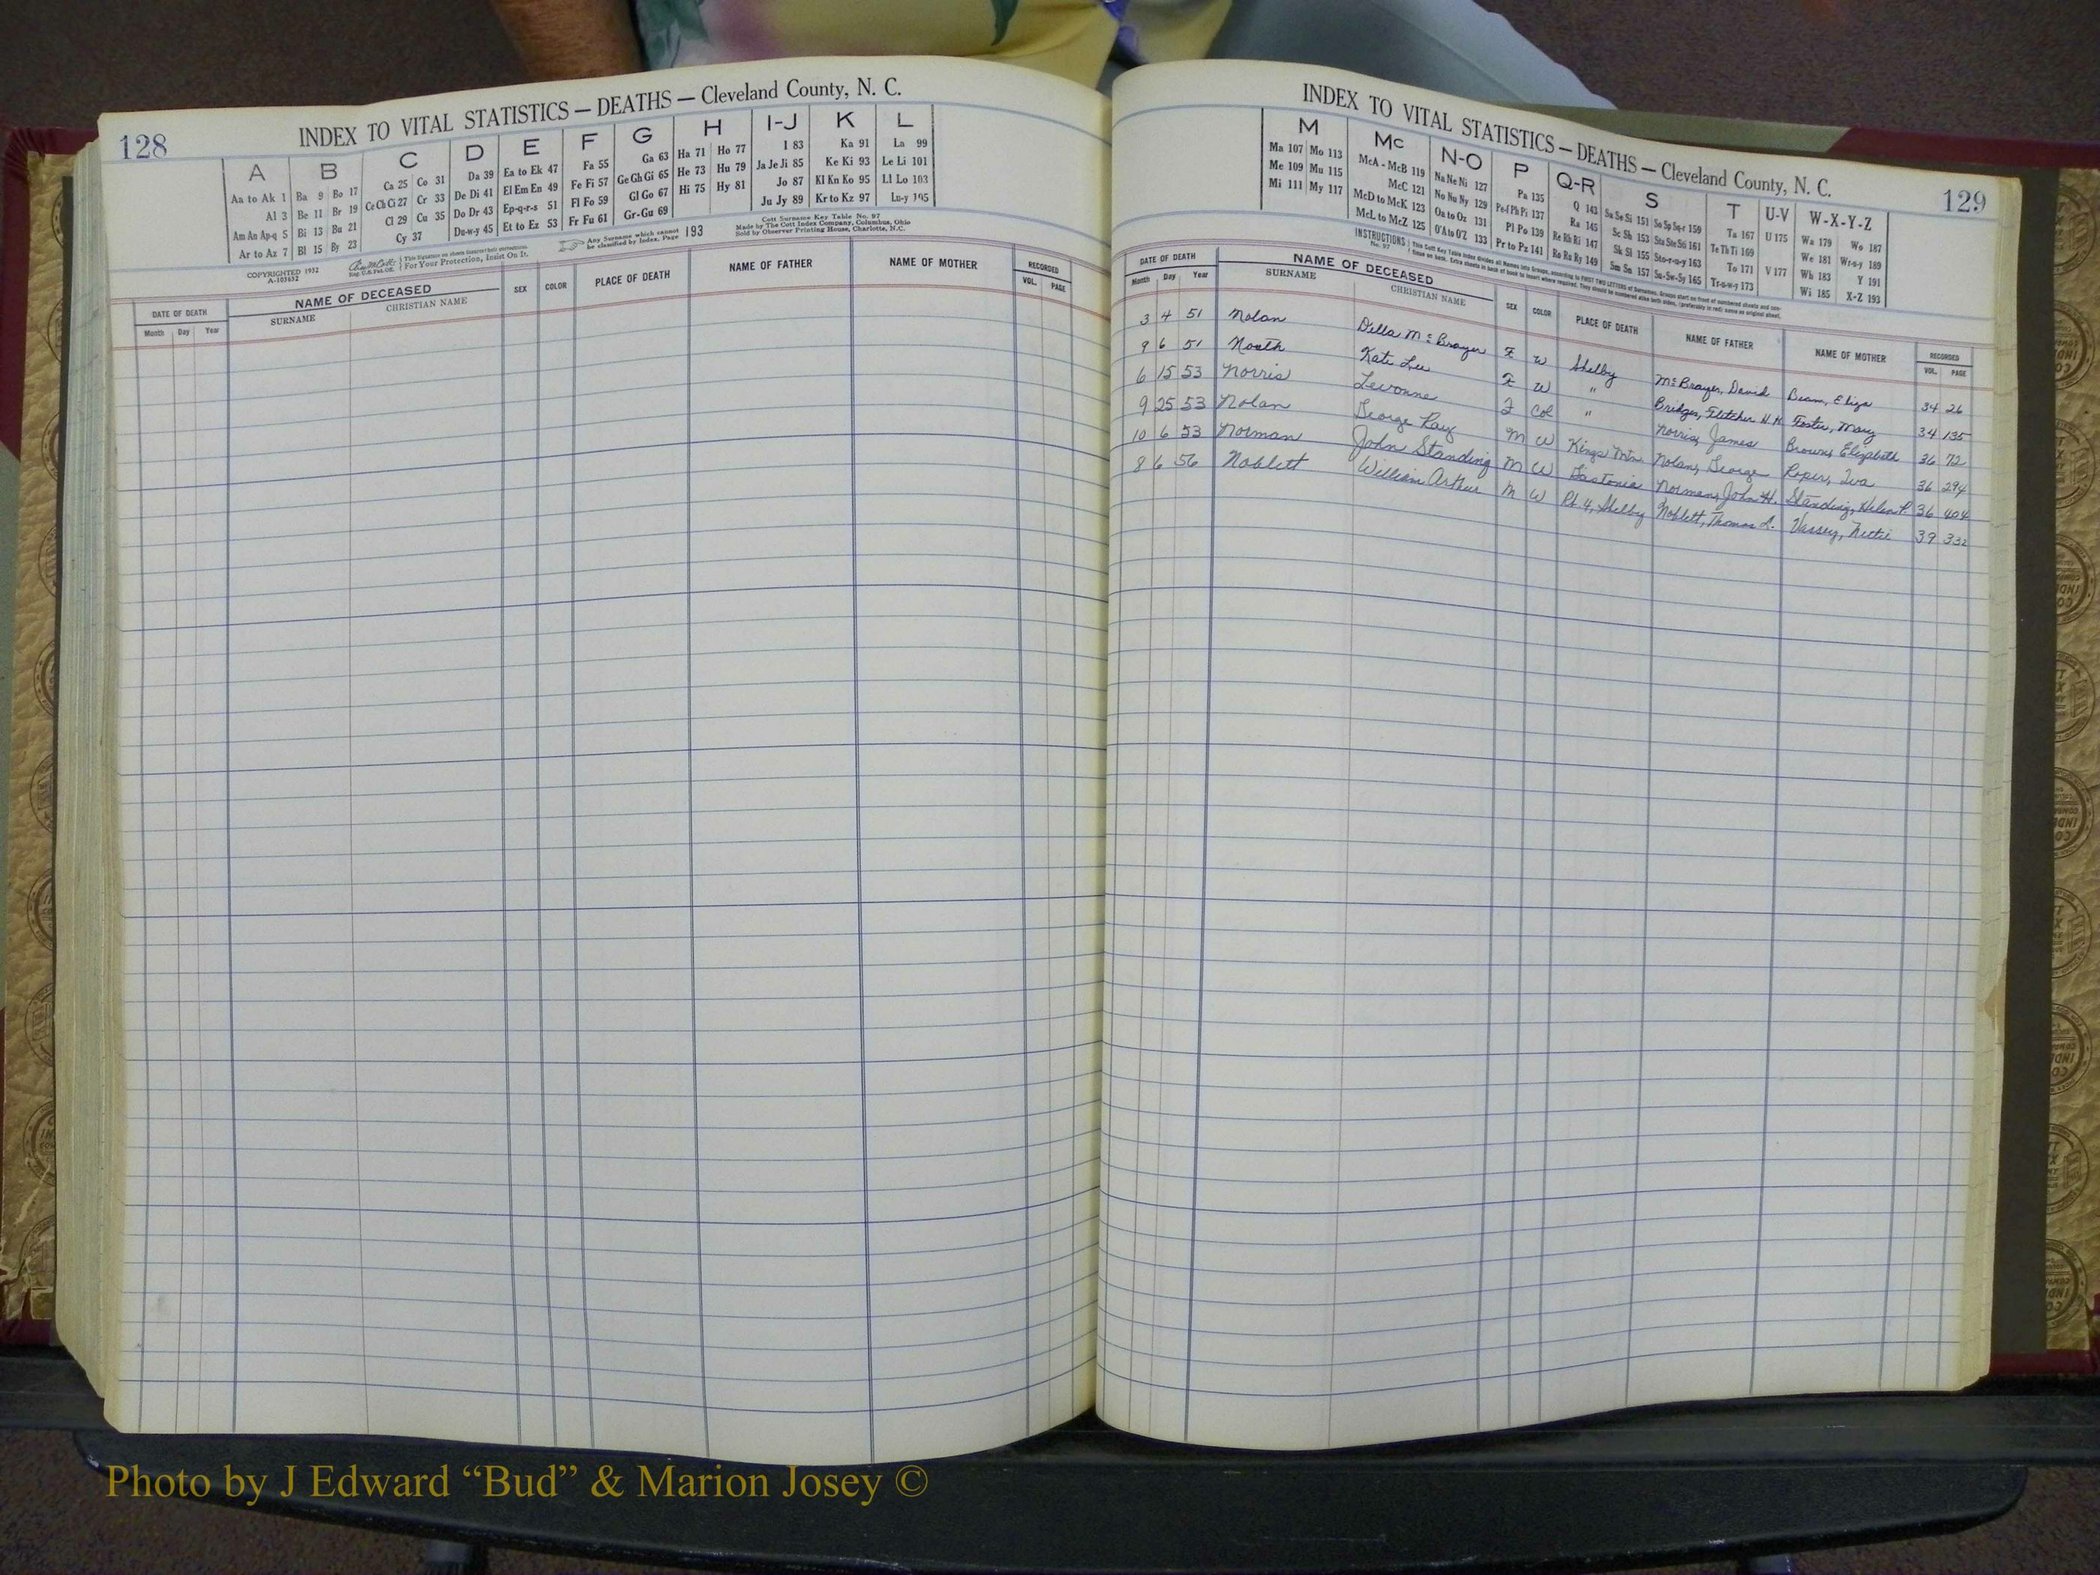 128
INDEX TO VITAL STATISTICS — DEATHS — Cleveland County, N. C.
A B C D E F G H I-J K L
Aa to Ak 1 Ba 9 Bo 17 Ca 25 Co 31 Da 39 Ea to Ek 47 Fa 55 Ga 63 Ha 71 Ho 77 I 83 Ka 91 La 99
Al 3 Be 11 Br 19 Ce Ch Ci 27 Cr 33 De Di 41 El Em En 49 Fe Fi 57 Ge Gh Gi 65 He 73 Hu 79 Ja Je Ji 85 Ke Ki 93 Le Li 101
Am An Ap-q 5 Bi 13 Bu 21 Cl 29 Cu 35 Do Dr 43 Ep-q-r-s 51 Fl Fo 59 Gl Go 67 Hi 75 Hy 81 Jo 87 Kl Kn Ko 95 Ll Lo 103
Ar to Az 7 Bl 15 By 23 Cy 37 Du-w-y 45 Et to Ez 53 Fr Fu 61 Gr-Gu 69 Ju Jy 89 Kr to Kz 97 Lu-y 105
COPYRIGHTED 1932
A-103632
For Your Protection, Insist On It.
Any Surname which cannot be classified by Index, Page 193
Cott Surname Key Table No. 97
Made by The Cott Index Company, Columbus, Ohio
Sold by Observer Printing House, Charlotte, N.C.
DATE OF DEATH NAME OF DECEASED SEX COLOR PLACE OF DEATH NAME OF FATHER NAME OF MOTHER RECORDED
Month Day Year SURNAME CHRISTIAN NAME VOL. PAGE
INDEX TO VITAL STATISTICS — DEATHS — Cleveland County, N. C.
129
M Mc N-O P Q-R S T U-V W-X-Y-Z
Ma 107 Mo 113 McA - McB 119 Na Ne Ni 127 Pa 135 Q 143 Sa Se Si 151 So Sp Sq-r 159 Ta 167 U 175 Wa 179 Wo 187
Me 109 Mu 115 McC 121 No Nu Ny 129 Pe-f Ph Pi 137 Ra 145 Sc Sh 153 Sta Ste Sti 161 Te Th Ti 169 We 181 Wr-u-y 189
Mi 111 My 117 McD to McK 123 Oa to Oz 131 Pl Po 139 Re Rh Ri 147 Sk Sl 155 Sto-r-u-y 163 To 171 V 177 Wh 183 Y 191
McL to McZ 125 O'A to O'Z 133 Pr to Pz 141 Ro Ru Ry 149 Sm Sn 157 Su-Sw-Sy 165 Tr-u-w-y 173 Wi 185 X-Z 193
INSTRUCTIONS
No. 97
DATE OF DEATH NAME OF DECEASED SEX COLOR PLACE OF DEATH NAME OF FATHER NAME OF MOTHER RECORDED
Month Day Year SURNAME CHRISTIAN NAME VOL. PAGE
3 4 51 Nolan Della McBrayer F W Shelby McBrayer, David Beam, Eliza 34 26
9 6 51 North Kate Lee F W " Bridges, Fletcher H.H. Foster, Mary 34 135
6 15 53 Norris Levonne F Col " Norris, James Brown, Elizabeth 36 72
9 25 53 Nolan George Ray M W Kings Mtn. Nolan, George Roper, Iva 36 294
10 6 53 Norman John Standing M W Gastonia Norman, John H. Standing, Helen P. 36 404
8 6 56 Noblett William Arthur M W Rt 4, Shelby Noblett, Thomas L. Vassey, Nettie 39 332
Photo by J Edward “Bud” & Marion Josey ©